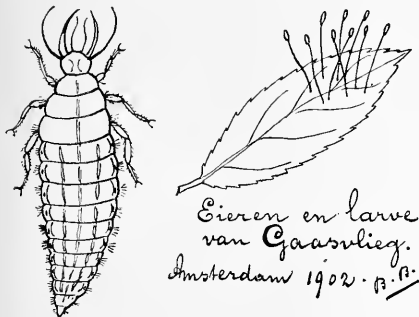 Eieren en larve
van Gaasvlieg.
Amsterdam 1902. B.B.